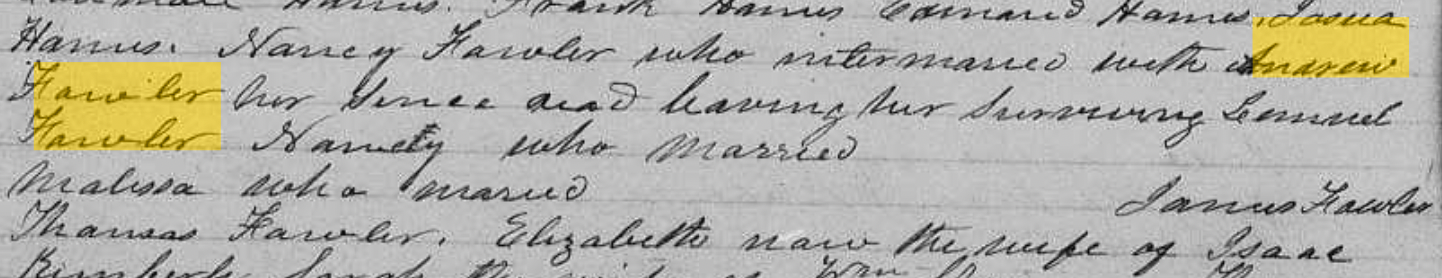 Harris. Frank Harris Edmund Harris. Josua
Harris. Nancy Fawler who intermarried with Andrew
Fawler her since dead leaving her surviving Lemuel
Fawler Namely who Married
Malissa who married James Fawler
Thomas Fawler. Elizabeth now the wife of Isaac
Kimberly Sarah the wife of Wm